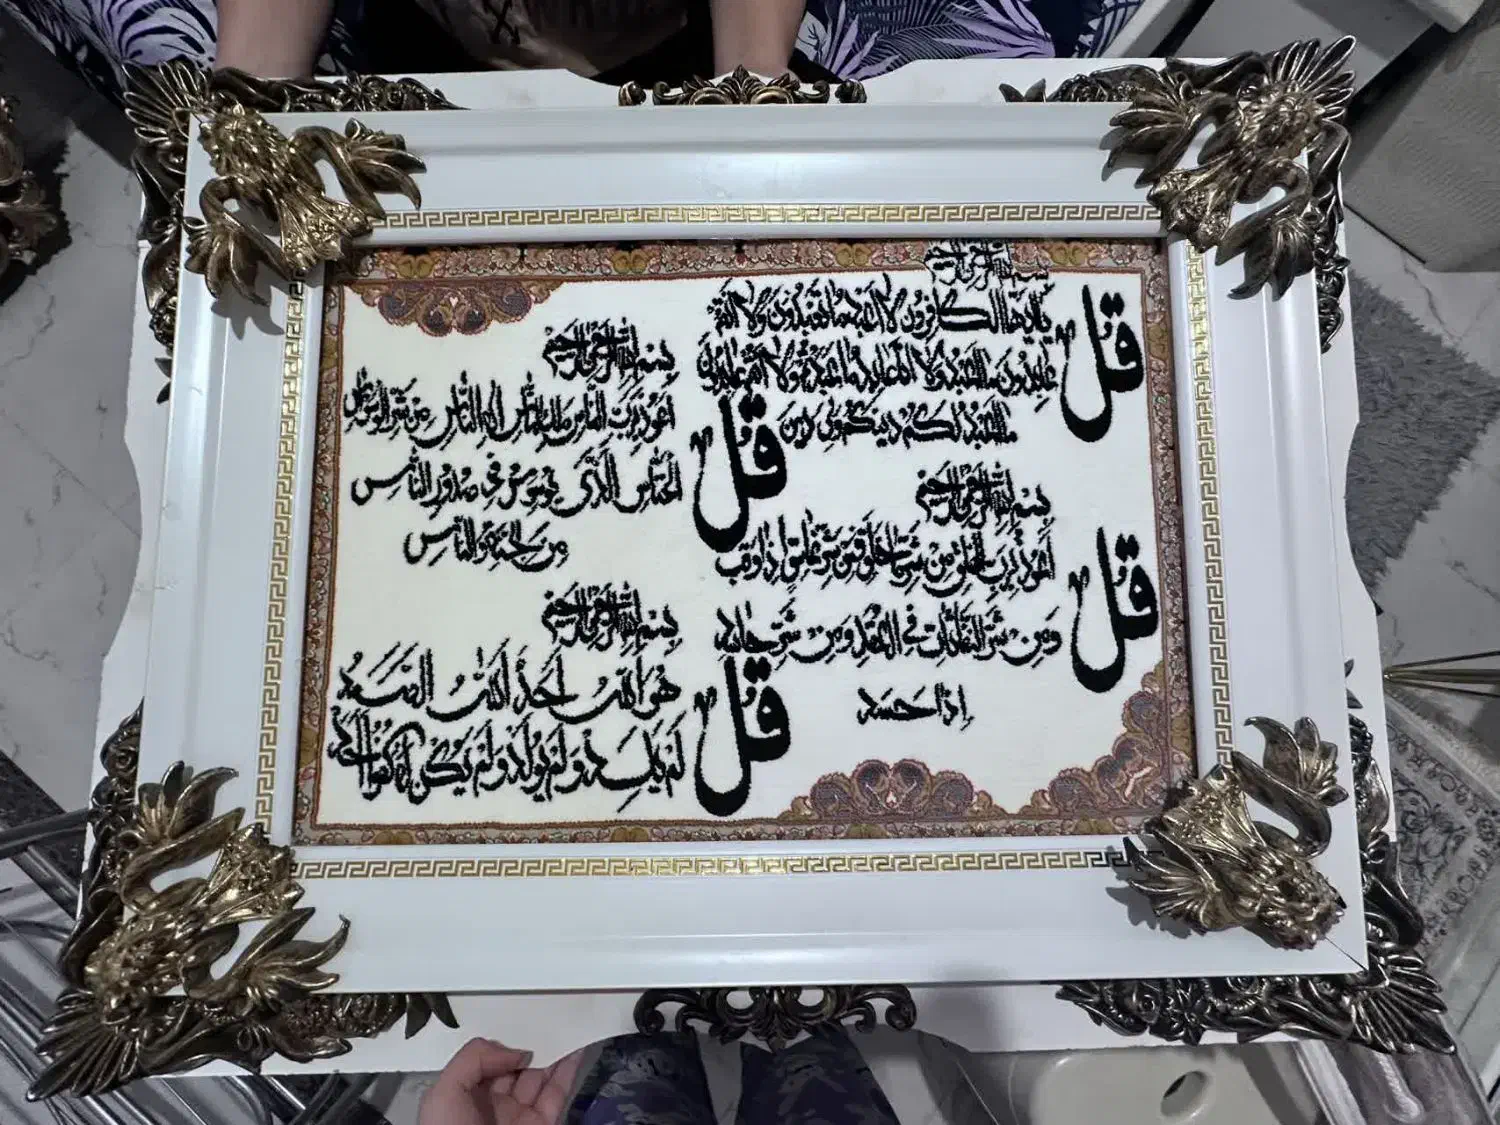 بسم الله الرحمن الرحيم
قل
يا ايها الكافرون لا اعبد ما تعبدون ولا انتم
عابدون ما اعبد ولا انا عابد ما عبدتم ولا انتم عابدون
ما اعبد لكم دينكم ولي دين
بسم الله الرحمن الرحيم
قل
اعوذ برب الفلق من شر ما خلق ومن شر غاسق اذا وقب
ومن شر النفاثات في العقد ومن شر حاسد
اذا حسد
بسم الله الرحمن الرحيم
قل
اعوذ برب الناس ملك الناس اله الناس من شر الوسواس
الخناس الذي يوسوس في صدور الناس
من الجنة والناس
بسم الله الرحمن الرحيم
قل
هو الله احد الله الصمد
لم يلد ولم يولد ولم يكن له كفوا احد